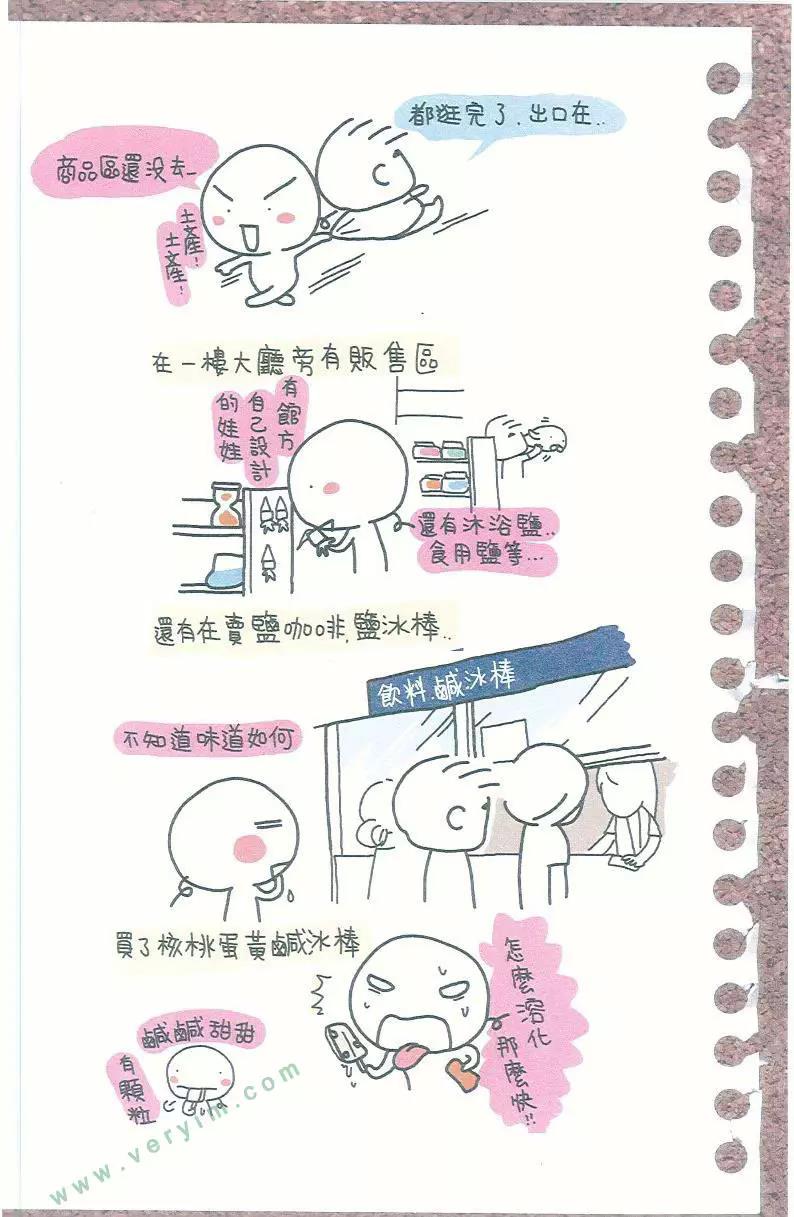 都逛完了.出口在..
商品區還没去~
土產!
土產!
在一樓大廳旁有販售區
有館方
自己設計
的娃娃
還有沐浴鹽..
食用鹽等...
還有在賣鹽咖啡.鹽冰棒..
飲料.鹹冰棒
不知道味道如何
買了核桃蛋黃鹹冰棒
怎麼溶化
那麼快!!
鹹鹹甜甜
有顆粒
www.veryim.com